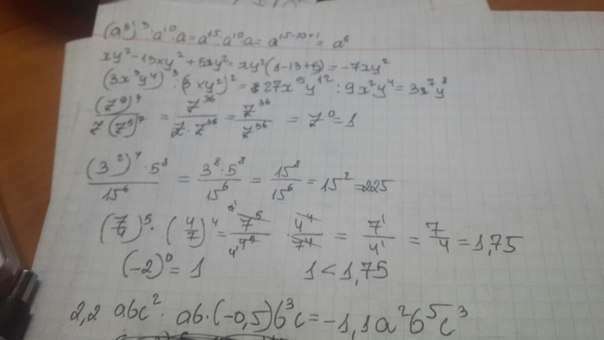 (a⁵)³ : a¹⁰ · a = a¹⁵ : a¹⁰ · a = a¹⁵⁻¹⁰⁺¹ = a⁶
xy² - 13xy² + 5xy² = xy²(1-13+5) = -7xy²
(3x³y⁴)³ : (3xy²)² = 27x⁹y¹² : 9x²y⁴ = 3x⁷y⁸
(z⁹)⁴ / z(z⁵)⁷ = z³⁶ / z · z³⁵ = z³⁶ / z³⁶ = z⁰ = 1
(3²)⁴ · 5⁸ / 15⁶ = 3⁸ · 5⁸ / 15⁶ = 15⁸ / 15⁶ = 15² = 225
(7/4)⁵ · (4/7)⁴ = 7⁵ / 4⁵ · 4⁴ / 7⁴ = 7¹ / 4¹ = 7/4 = 1,75
(-2)⁰ = 1 1 < 1,75
2,2 abc² · ab · (-0,5)b³c = -1,1a²b⁵c³